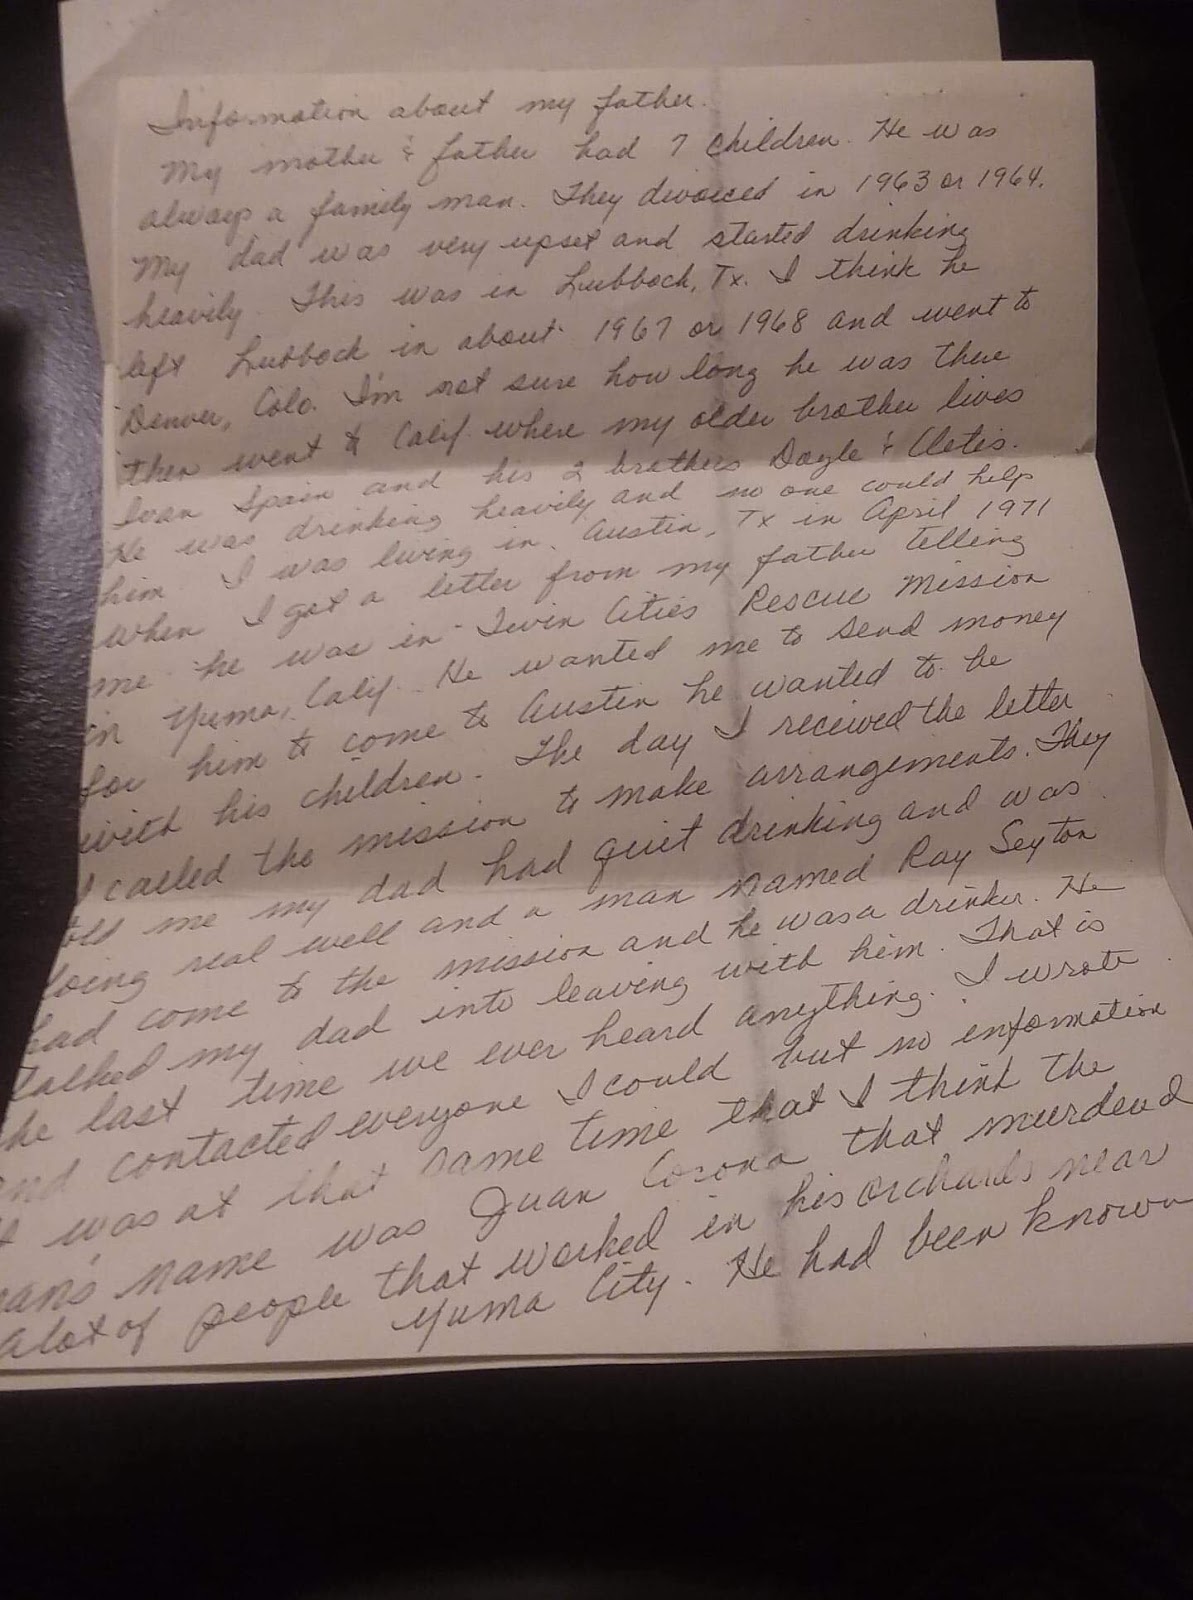 Information about my father.
My mother & father had 7 children. He was
always a family man. They divorced in 1963 or 1964.
My dad was very upset and started drinking
heavily. This was in Lubbock, Tx. I think he
left Lubbock in about 1967 or 1968 and went to
Denver, Colo. I'm not sure how long he was there
then went to Calif where my older brother lives
Ivan Spain and his 2 brothers Doyle & Cletis.
He was drinking heavily and no one could help
him. I was living in Austin, Tx in April 1971
when I got a letter from my father telling
me he was in Twin Cities Rescue Mission
in Yuma, Calif. He wanted me to send money
for him to come to Austin he wanted to be
with his children. The day I received the letter
I called the mission to make arrangements. They
told me my dad had quit drinking and was
doing real well and a man named Ray Seyton
had come to the mission and he was a drinker. He
talked my dad into leaving with him. That is
the last time we ever heard anything. I wrote
and contacted everyone I could but no information
It was at that same time that I think the
man's name was Juan Corona that murdered
alot of people that worked in his orchards near
Yuma City. He had been known